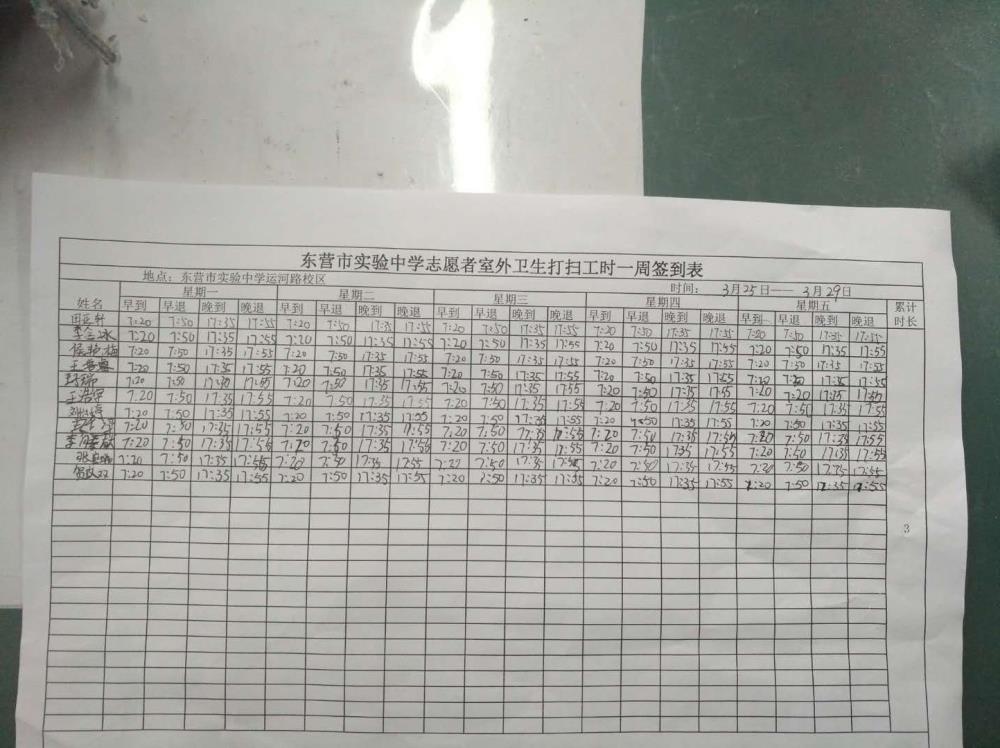 东营市实验中学志愿者室外卫生打扫工时一周签到表
地点：东营市实验中学运河路校区 时间： 3月25日—— 3月29日
姓名 星期一 星期二 星期三 星期四 星期五 累计时长
早到 早退 晚到 晚退 早到 早退 晚到 晚退 早到 早退 晚到 晚退 早到 早退 晚到 晚退 早到 早退 晚到 晚退
7:20 7:50 17:35 17:55 7:20 7:50 17:35 17:55 7:20 7:50 17:35 17:55 7:20 7:50 17:35 17:55 7:20 7:50 17:35 17:55
7:20 7:50 17:35 17:55 7:20 7:50 17:35 17:55 7:20 7:50 17:35 17:55 7:20 7:50 17:35 17:55 7:20 7:50 17:35 17:55
7:20 7:50 17:35 17:55 7:20 7:50 17:35 17:55 7:20 7:50 17:35 17:55 7:20 7:50 17:35 17:55 7:20 7:50 17:55
7:20 7:50 17:35 17:55 7:20 7:50 17:35 17:55 7:20 7:50 17:35 17:55 7:20 7:50 17:35 17:55 7:20 17:55
7:20 7:50 7:20 7:50 17:35 17:55 7:20 7:50 17:35 17:55 7:20 7:50 17:35 7:20 7:20 17:35
王浩宇 7:20 7:50 17:35 17:55 7:20 7:50 17:35 17:55 7:20 7:50 17:35 17:55 7:20 7:50 17:35 17:55 7:20 7:50 17:35 17:55
7:20 7:50 17:35 17:55 7:20 7:50 17:35 17:55 7:20 7:50 17:35 17:55 7:20 17:35 17:55 7:20 7:50 17:35 17:55
7:20 7:50 17:35 17:55 7:20 7:50 17:35 17:55 7:20 7:50 17:35 17:55 7:20 7:50 17:35 7:20 7:50 17:35 17:55
7:20 7:50 17:35 7:50 17:35 7:20 7:50 17:35 17:55 7:20 7:50 17:35 17:55 7:20 7:50 17:35 17:55
7:20 7:50 17:35 7:20 7:50 17:35 17:55 7:20 7:50 17:35 7:20 7:50 17:35 17:55 7:20 7:50
7:20 7:50 17:35 17:55 7:20 7:50 17:35 17:55 7:20 7:50 17:35 17:35 7:20 7:50 17:35 17:55 7:20 7:50 17:35 17:55
3